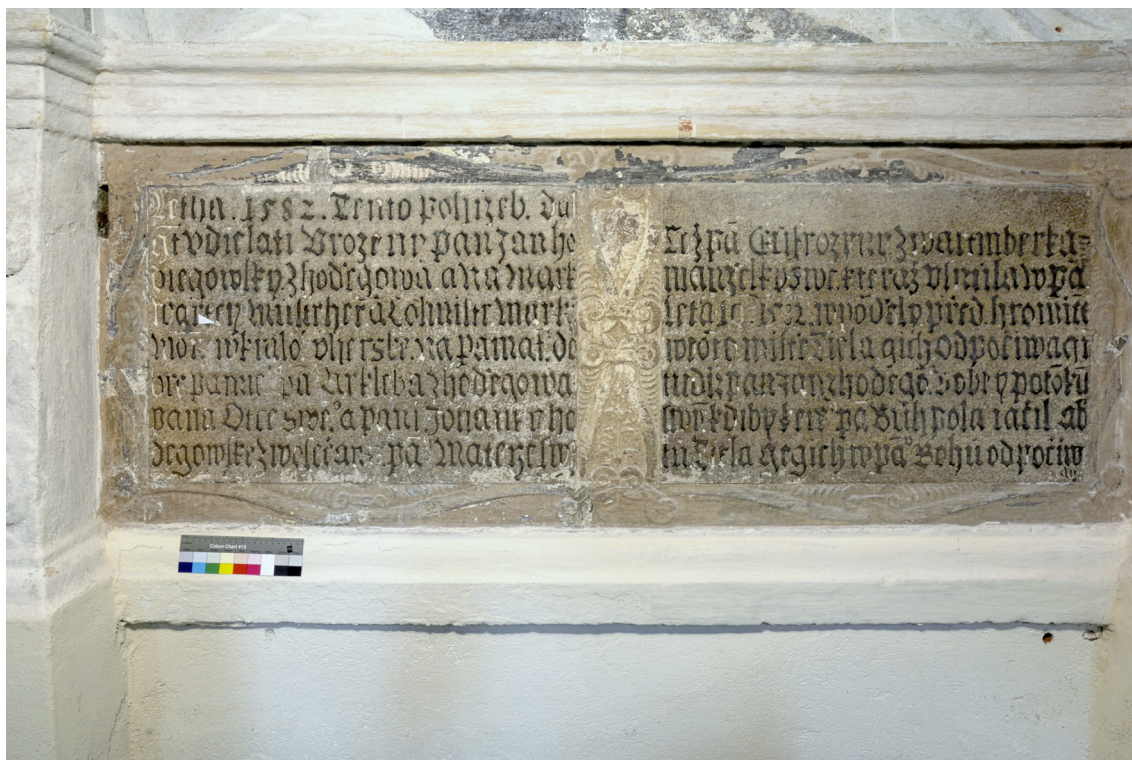 Letha . 1582 . Tento pohrzeb . dal
gt vdielati Vrozeny pan Jan ho
diegowsky z hodiegowa a na Mark
mistrhe a Kolmistr Mark
w kralo . vherske . na pamat . do
bre pameti pa Arkleba z hodiegowa
pana Otce Swe° a pani Johanny ho
degowske z pa Manzelky
Též pa Eufrozyny z Wartmberka
manzelky Swe . kteraz vmrzela w pa
leta 1582 . w vodely przed hromicze
w kto mistie Tiela gich odpocziwagi
tudiz pan Jan z hodiego sobie y potomku
swy kdyby kere° pa Buh pola racil ab
tu Tiela gegich w pa Bohu odpocziw
Colour Chart #13